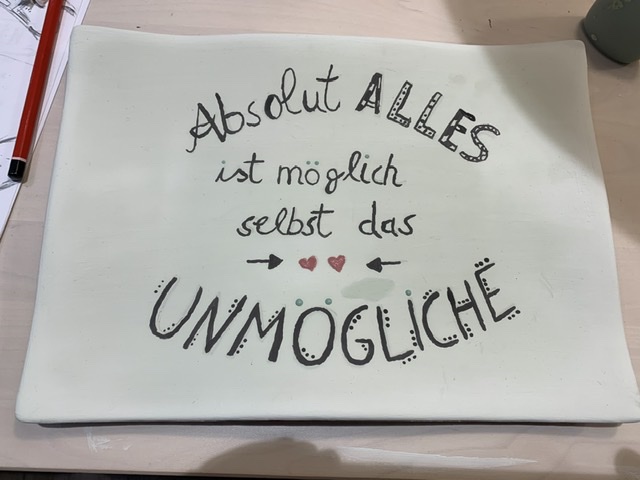 Absolut ALLES
ist möglich
selbst das
UNMÖGLICHE